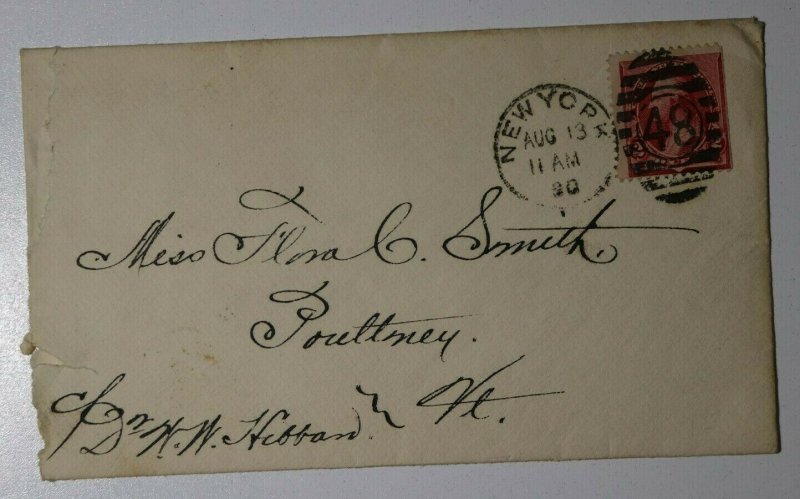 NEW YORK
AUG 13
11 AM
90
48
Miss Flora C. Smith.
Poultney.
Vt.
c/o Dr. W. W. Hibbard